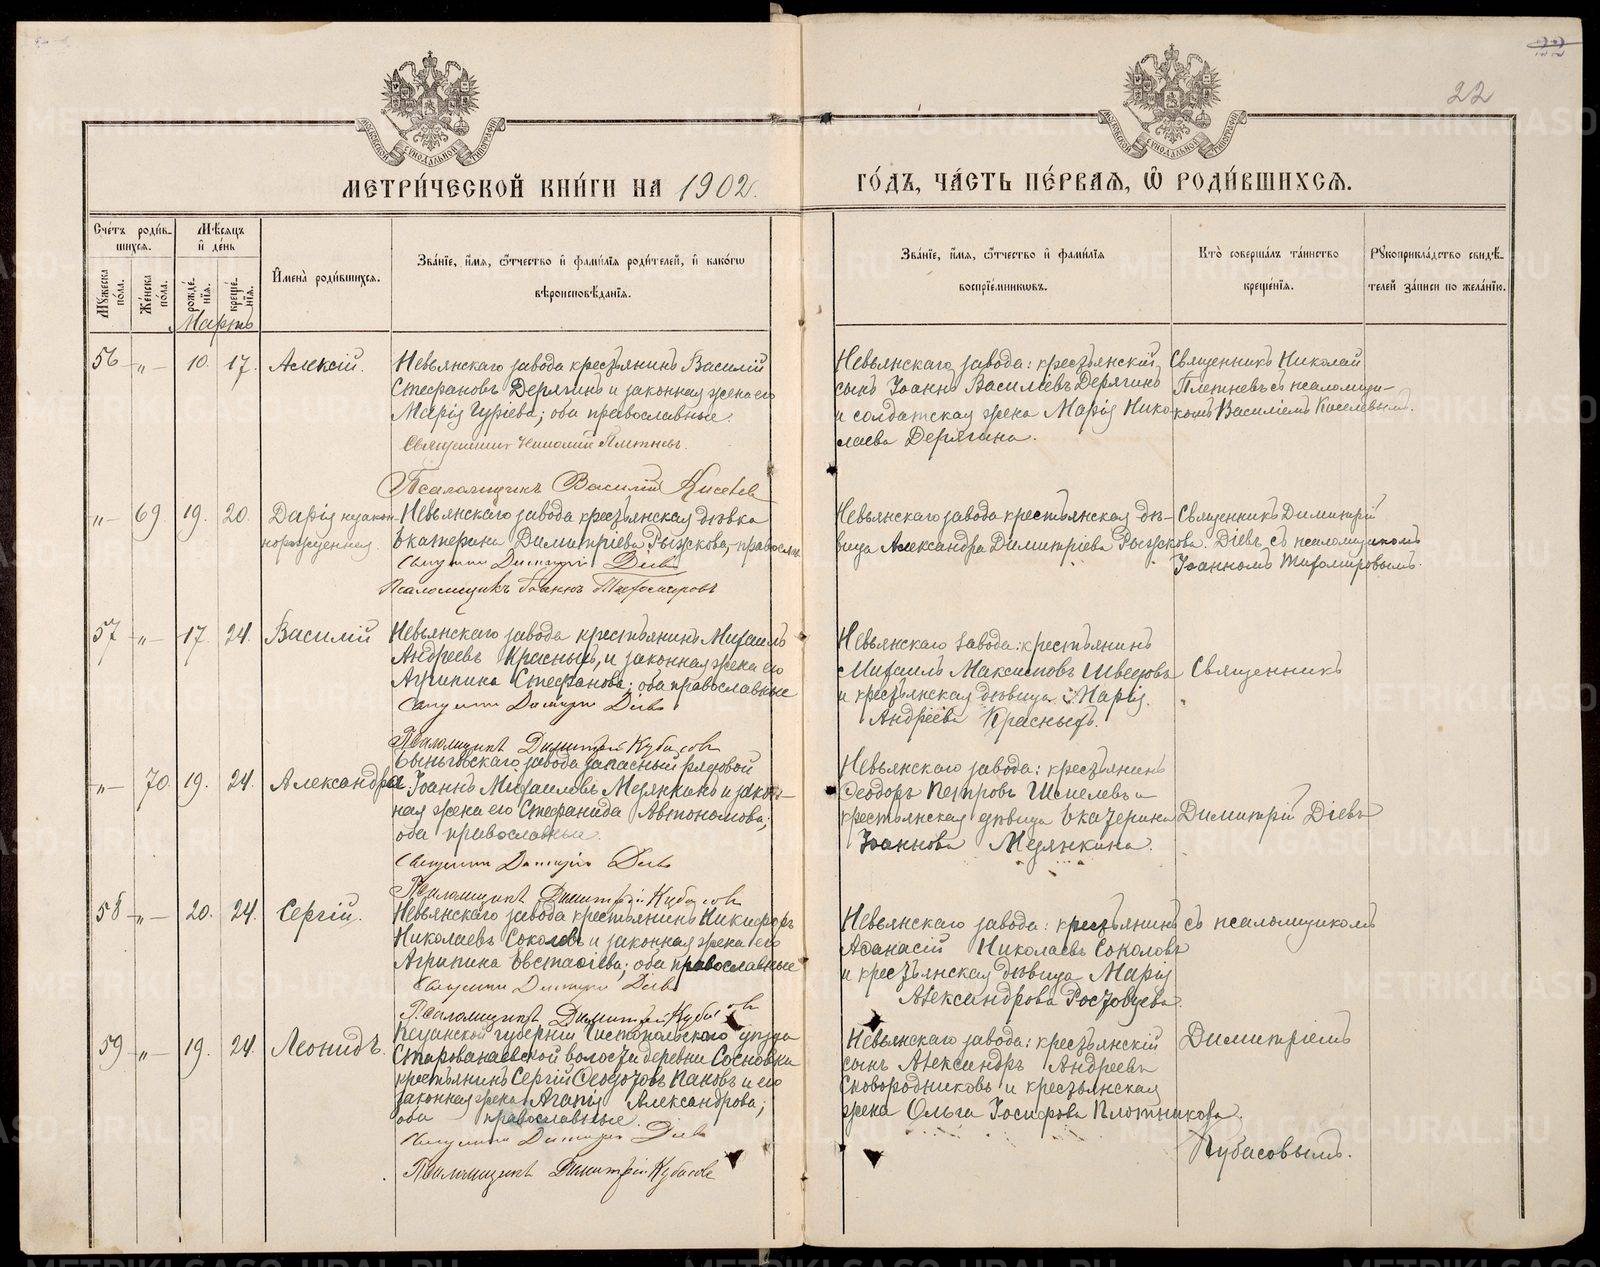 22
22
МОСКОВСКОЙ СѴНОДАЛЬНОЙ ТИПОГРАФІИ
МОСКОВСКОЙ СѴНОДАЛЬНОЙ ТИПОГРАФІИ
МЕТРИ́ЧЕСКОЙ КНИ́ГИ НА 1902.
ГО́ДЪ, ЧА́СТЬ ПЕ́РВАЯ, Ѽ РОДИ́ВШИХСЯ.
Сче́тъ роди́в-
шихся.
Мꙋ́жеска по́ла.
Же́нска по́ла.
Мѣ́сяцъ
и҆ де́нь
рожде́нїя.
креще́нїя.
Мартъ
И҆мена̀ роди́вшихся.
Зва́нїе, и҆́мя, ѻ҆́тчество и҆ фами́лїя роди́телей, и҆ како́гѡ
вѣроисповѣ́данїя.
Зва́нїе, и҆́мя, ѻ҆́тчество и҆ фами́лїя
воспрїе́мникѡвъ.
Кто̀ соверша́лъ та́инство
креще́нїя.
Рꙋкоприкла́дство свидѣ́-
телей за́писи по жела́нїю.
56 -„- 10. 17. Алексій.
Невьянскаго завода крестьянинъ Василій
Стефановъ Дерягинъ и законная жена его
Марія Гуріева; оба православные.
Священникъ Николай Плетневъ.
Псаломщикъ Василій Киселевъ
Невьянскаго завода: крестьянскій
сынъ Іоаннъ Васильевъ Дерягинъ
и солдатская жена Марія Нико-
лаева Дерягина.
Священникъ Николай
Плетневъ съ псаломщи-
комъ Василіемъ Киселевымъ.
-„- 69 19. 20. Дарія незакон-
норожденная.
Невьянскаго завода крестьянская дѣвка
Екатерина Димитріева Рыжкова, православн.
Священникъ Димитрій Діевъ
Псаломщикъ Іоаннъ Тихомировъ
Невьянскаго завода крестьянская дѣ-
вица Александра Димитріева Рыжкова.
Священникъ Димитрій
Діевъ съ псаломщикомъ
Іоанномъ Тихомировымъ.
57 -„- 17 24. Василій
Невьянскаго завода крестьянинъ Михаилъ
Андреевъ Красныхъ, и законная жена его
Агрипина Стефанова; оба православные
Священникъ Димитрій Діевъ
Псаломщикъ Димитрій Кубасовъ
Невьянскаго завода: крестьянинъ
Михаилъ Максимовъ Шведовъ
и крестьянская дѣвица Марія
Андреева Красныхъ.
Священникъ
-„- 70. 19. 24. Александра
Быньговскаго завода запасный рядовой
Іоаннъ Михаиловъ Медянкинъ и закон-
ная жена его Стефанида Автономова;
оба православные.
Священникъ Димитрій Діевъ
Псаломщикъ Димитрій Кубасовъ
Невьянскаго завода: крестьянинъ
Ѳеодоръ Петровъ Шмелевъ и
крестьянская дѣвица Екатерина
Іоаннова Медянкина.
Димитрій Діевъ
58 -„- 20. 24. Сергій.
Невьянскаго завода крестьянинъ Никифоръ
Николаевъ Соколовъ и законная жена его
Агрипина Евстафіева; оба православные
Священникъ Димитрій Діевъ
Псаломщикъ Димитрій Кубасовъ
Невьянскаго завода: крестьянинъ
Афанасій Николаевъ Соколовъ
и крестьянская дѣвица Марія
Александрова Ростовцева.
съ псаломщикомъ
59 -„- 19. 24. Леонидъ.
Казанской губерніи Чистопольскаго уѣзда
волости деревни Сосновки
крестьянинъ Сергій Пановъ и его
законная жена Агапія Александрова;
оба православные.
Священникъ Димитрій Діевъ
Псаломщикъ Димитрій Кубасовъ
Невьянскаго завода: крестьянскій
сынъ Александръ Андреевъ
Сковородниковъ и крестьянская
жена Ольга Іосифова Плотникова.
Димитріемъ
Кубасовымъ.
METRIKI.GASO-URAL.RU